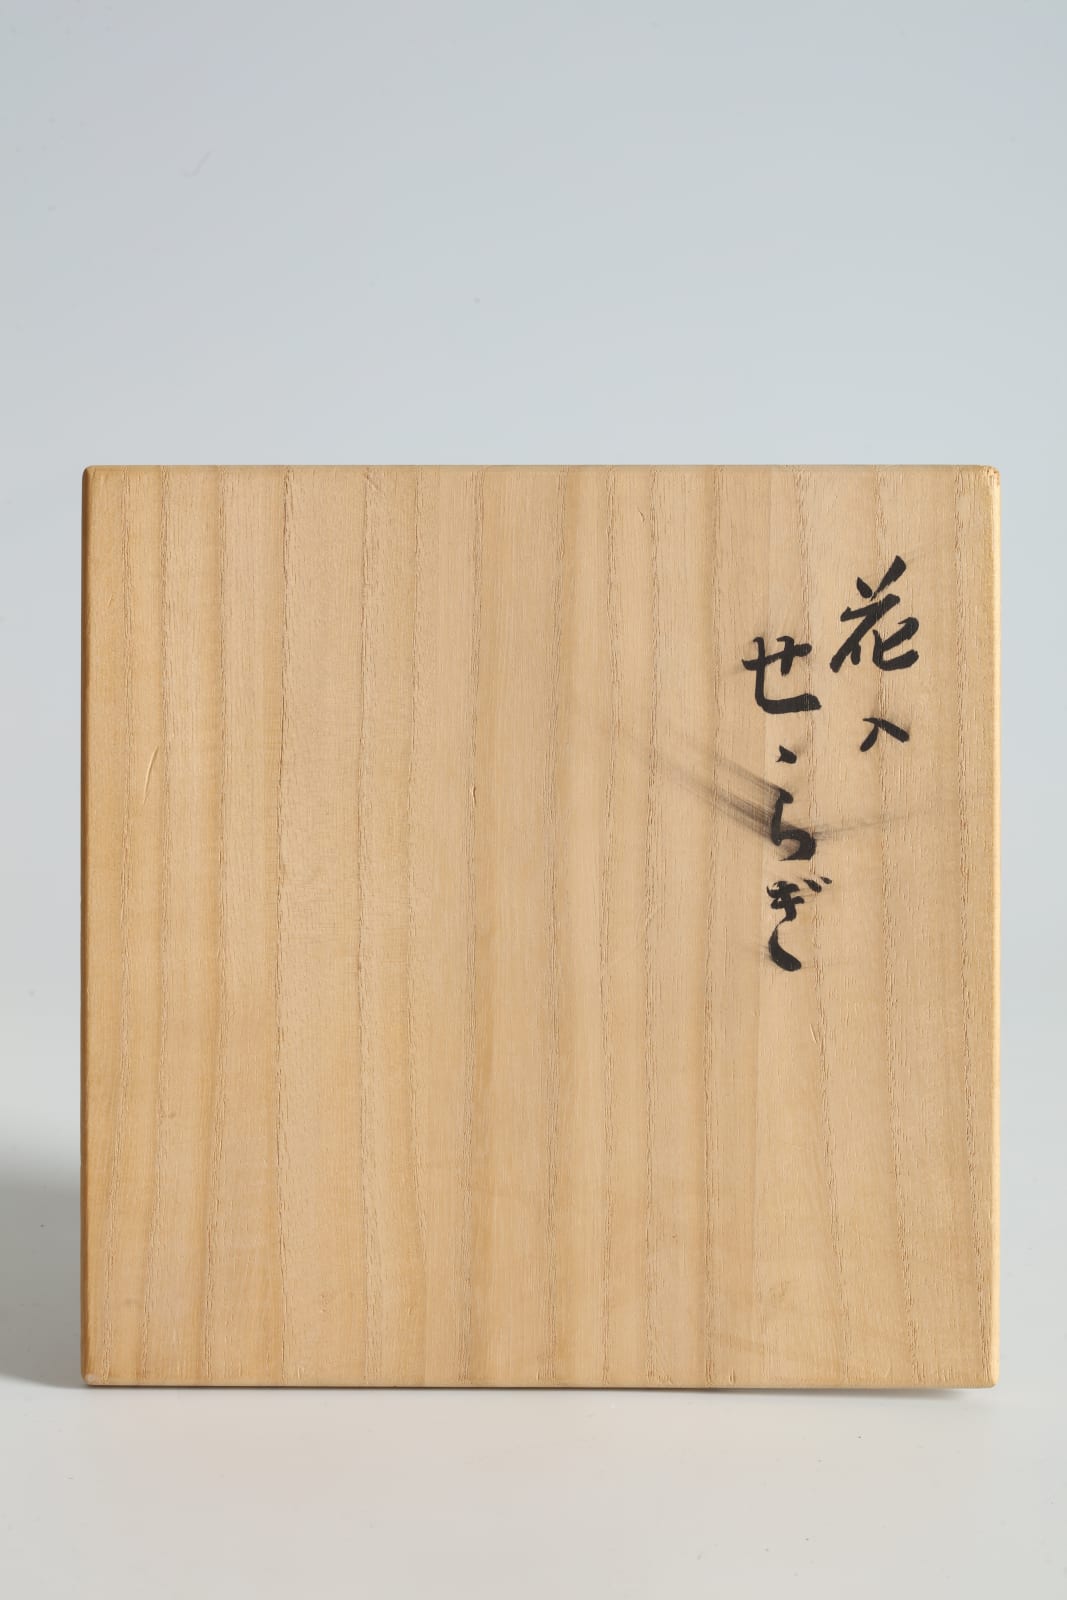 花入
せゝらぎ